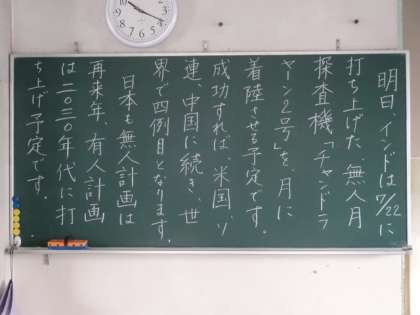 明日、インドは7/22に
打ち上げた無人月
探査機「チャンドラ
ヤーン2号」を月に
着陸させる予定です。
成功すれば、米国、ソ
連、中国に続き、世
界で四例目となります。
日本も無人計画は
再来年、有人計画
は二〇三〇年代に打
ち上げ予定です。